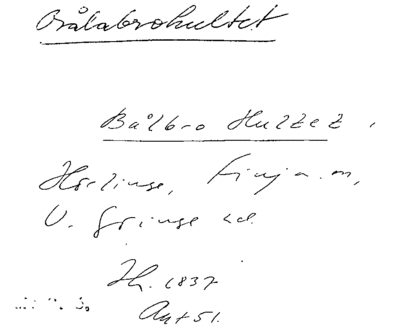 Brålabrohultet
Bålbro Hultet,
Hörlinge, Finja sn,
V. Göinge hd.
Th. 1837
Ant 51.